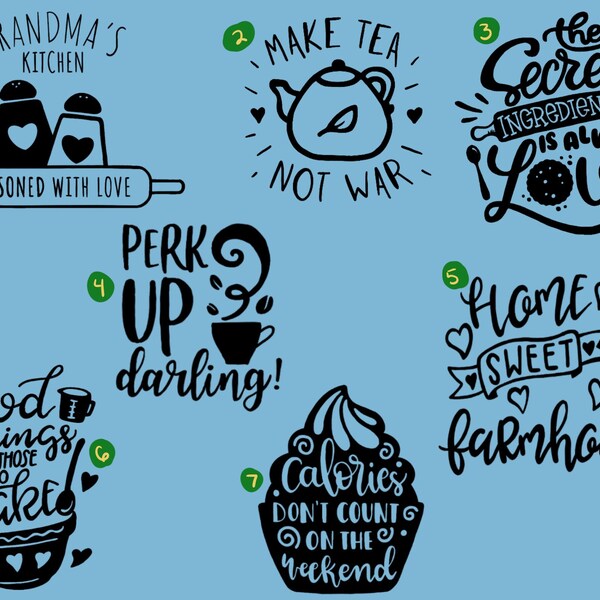 RANDMA'S
KITCHEN
SONED WITH LOVE
2
MAKE TEA
NOT WAR
3
the
Secre
INGREDIEN
IS AL
LOV
4
PERK
UP
darling!
5
HOME
SWEET
farmho
6
od
ings
THOSE
O
ake
7
Calories
DON'T COUNT
ON THE
weekend